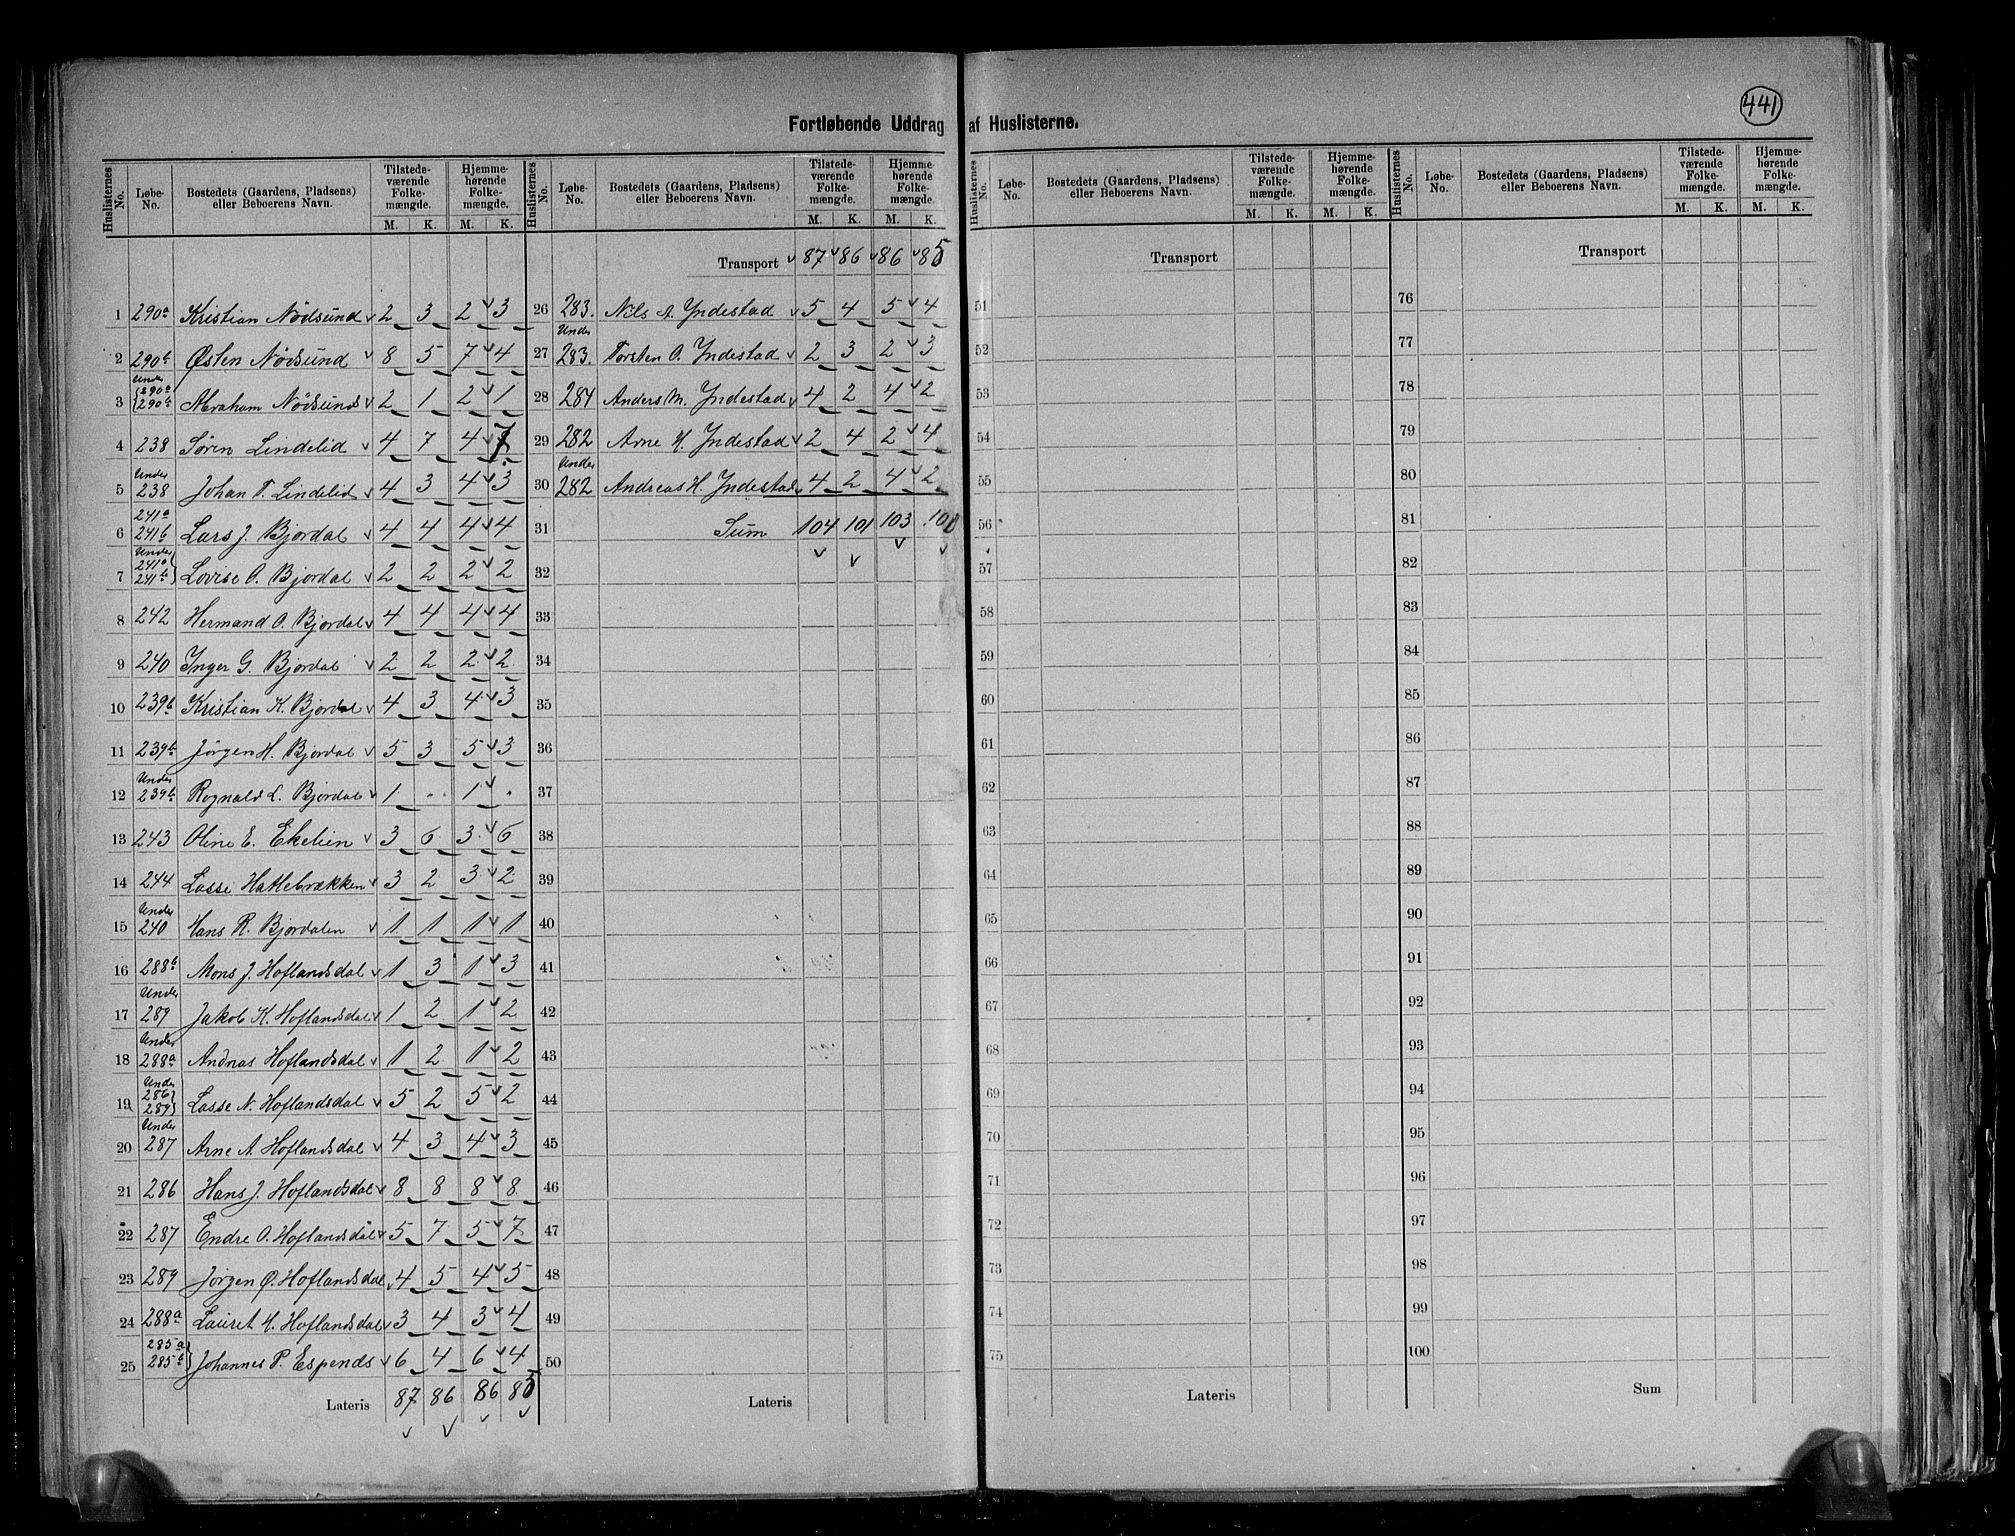 441
Fortløbende Uddrag af Huslisterne.
Huslisternes No. | Løbe-No. | Bostedets (Gaardens, Pladsens) eller Beboerens Navn. | Tilstede-værende Folke-mængde. M. K. | Hjemme-hørende Folke-mængde. M. K.
1 290a Kristian Nödsund 2 3 2 3
2 290b Østen Nödsund 8 5 7 4
3 Under 290a 290b Abraham Nödsund 2 1 2 1
4 238 Søren Lindelid 4 7 4 7
5 Under 238 Johan T. Lindelid 4 3 4 3
6 241a 241b Lars J. Bjordal 4 4 4 4
7 Under 241a 241b Lovise O. Bjordal 2 2 2 2
8 242 Hermand O. Bjordal 4 4 4 4
9 240 Inger G. Bjordal 2 2 2 2
10 239b Kristian K. Bjordal 4 3 4 3
11 239b Jørgen H. Bjordal 5 3 5 3
12 Under 239b Rognald L. Bjordal 1 - 1 -
13 243 Oline E. Ekelien 3 6 3 6
14 244 Lasse Hattebrækken 3 2 3 2
15 Under 240 Hans R. Bjordalen 1 1 1 1
16 288b Mons J. Hoflandsdal 1 3 1 3
17 Under 289 Jakob K. Hoflandsdal 1 2 1 2
18 Under 288a Andnas Hoflandsdal 1 2 1 2
19 Under 286 289 Lasse N. Hoflandsdal 5 2 5 2
20 Under 287 Arne A. Hoflandsdal 4 3 4 3
21 286 Hans J. Hoflandsdal 8 8 8 8
22 287 Endre O. Hoflandsdal 5 7 5 7
23 289 Jørgen Ø. Hoflandsdal 4 5 4 5
24 288a Lauret H. Hoflandsdal 3 4 3 4
25 285a 285b Johannes P. Espends 6 4 6 4
Lateris 87 86 86 85
Huslisternes No. | Løbe-No. | Bostedets (Gaardens, Pladsens) eller Beboerens Navn. | Tilstede-værende Folke-mængde. M. K. | Hjemme-hørende Folke-mængde. M. K.
Transport 87 86 86 85
26 283. Nils A. Yndestad 5 4 5 4
27 Under 283. Torsten O. Yndestad 2 3 2 3
28 284 Anders M. Yndestad 4 2 4 2
29 282 Arne H. Yndestad 2 4 2 4
30 Under 282 Andreas H. Yndestad 4 2 4 2
31 Sum 104 101 103 100
32
33
34
35
36
37
38
39
40
41
42
43
44
45
46
47
48
49
50
Lateris
Huslisternes No. | Løbe-No. | Bostedets (Gaardens, Pladsens) eller Beboerens Navn. | Tilstede-værende Folke-mængde. M. K. | Hjemme-hørende Folke-mængde. M. K.
Transport
51
52
53
54
55
56
57
58
59
60
61
62
63
64
65
66
67
68
69
70
71
72
73
74
75
Lateris
Huslisternes No. | Løbe-No. | Bostedets (Gaardens, Pladsens) eller Beboerens Navn. | Tilstede-værende Folke-mængde. M. K. | Hjemme-hørende Folke-mængde. M. K.
Transport
76
77
78
79
80
81
82
83
84
85
86
87
88
89
90
91
92
93
94
95
96
97
98
99
100
Sum